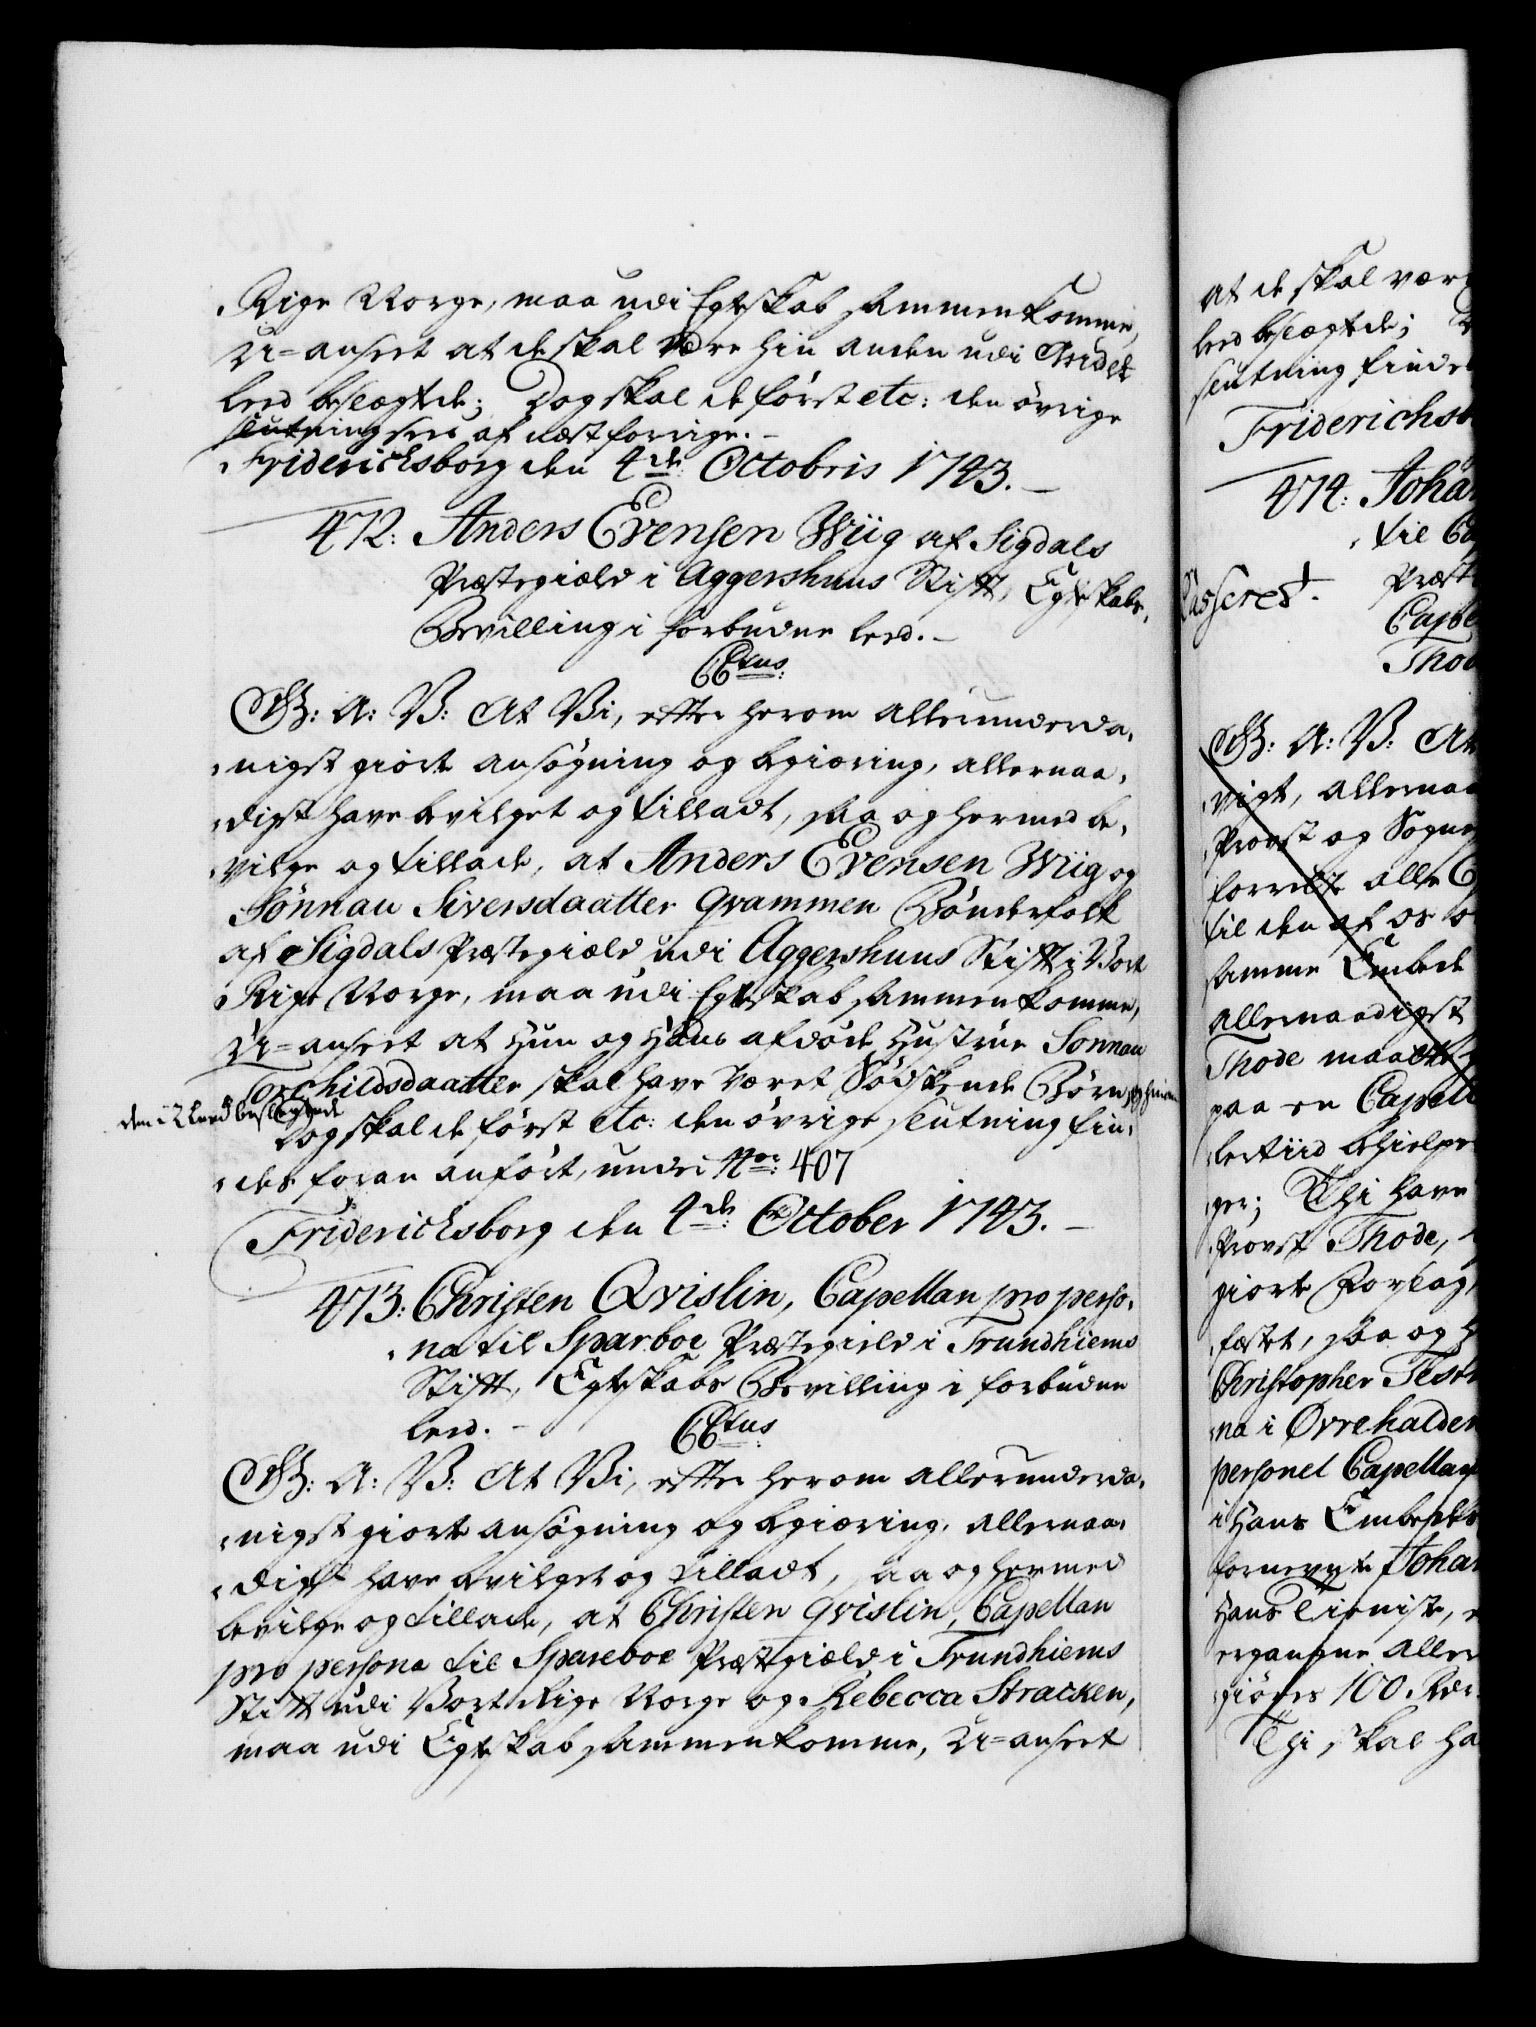 Rige Norge, maa udi Egteskab sammenkomme,
U-anseet at de skal være hin anden udi Tridie
Leed beslægtede; Dog skal de först etc: den övrige
slutning sees af næst forrige.
Friderichsborg den 4de Octobris 1743.
472: Anders Evensen Wiig af Sigdals
Præstegield i Aggershuus Stift, Egteskabs
Bevilling i forbudne Leed.
C6tus
G: A: V: At Vi, efter herom allerunderda-
nigst giorte ansögning og begiæring, allernaa-
digst have bevilget og tilladt, saa og hermed be-
vilge og tillade, at Anders Evensen Wiig og
Sönnau Siversdaatter Qvammen Bönderfolk
af Sigdals Præstegield udi Aggershuus Stift i Vort
Rige Norge, maa udi Egteskab sammenkomme,
U-anseet at Hun og Hans afdöde Hustrue Sönnau
Torchildsdaatter skal have været Södskende Börn og hinan
den i 2 Leed beslegtede
Dog skal de först etc: den övrige slutning fin-
des foran anfört, under Nor: 407
Friderichsborg den 4de October 1743.
473: Christen Qvislin, Capellan pro perso-
na til Sparboe Præstegield i Trundhiems
Stift, Egteskabs Bevilling i forbudne
Leed.
C6tus
G: A: V: At Vi, efter herom allerunderda-
nigst giorte ansögning og begiæring, allernaa-
digst have bevilget og tilladt, saa og hermed
bevilge og tillade, at Christen Qvislin, Capellan
pro persona til Spareboe Præstegield i Trundhiems
Stift udi Vort Rige Norge og Rebecca Stracken,
maa udi Egteskab sammenkomme, U-anseet
at de skal være
Leed beslægtede;
slutning findes
Friderichsb
474: Johan
til
Casseret.
Præst
Capel
Thod
G: A: V: At
vigt, allernaa
Provst og Sogne
forrette alle
til den af os
samme Embede
allernaadigst
Thode maatte
paa en Capell
lertiid behielpe
ger; Thi have
Provst Thode,
giorte Forslag,
fæstet, saa og h
Christopher Test
na i Øvrehalden
personel Capellan
i Hans Embedes
fornevnte Johan
Hans Tieniste,
ergangne Aller
giöres 100 Rdr.
Thi skal ha